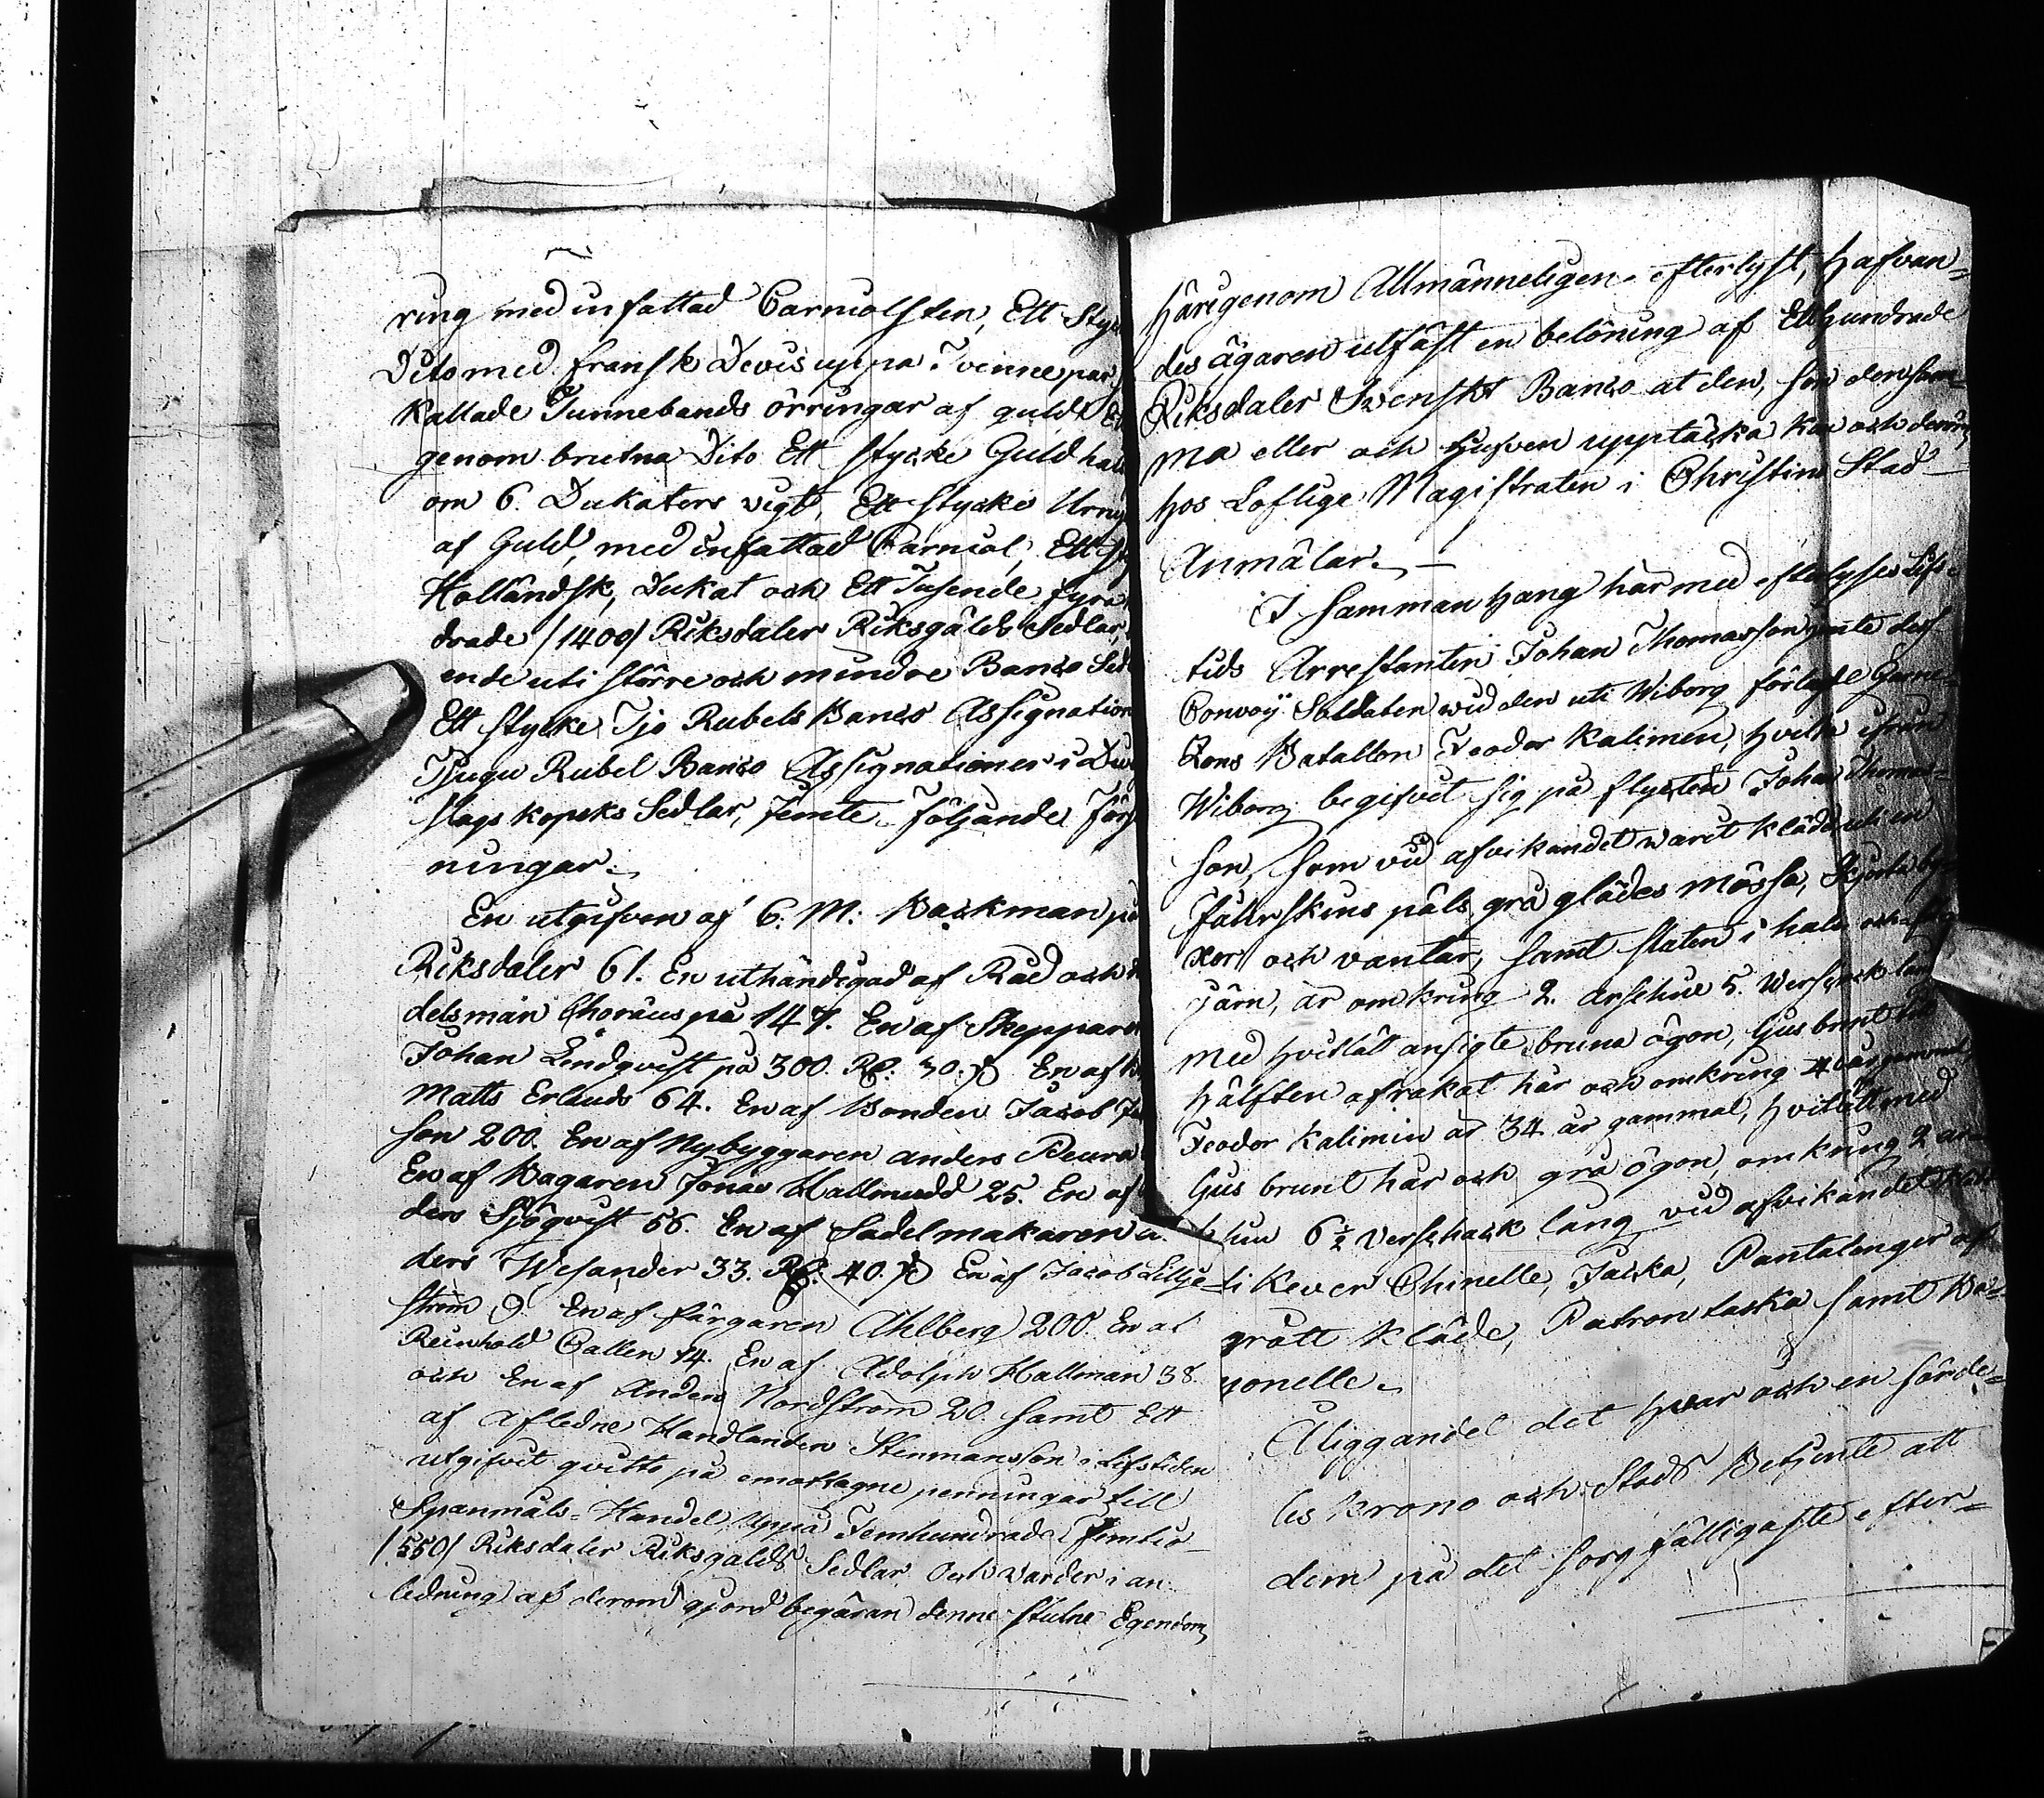 ring med infattad Carniolsten, Ett Styc
Dito med fransk Devis uppå. Tvenne par
Kallade Tunnebands örringar af guld
genom brutna Dito Ett stycke Guld
om 6. Dukaters vigt, Ett stycke
af Guld, med infattad Carniol, Ett
Holländsk, Dukat och Ett Tusende fyra
drade /1400/ Riksdaler Riksgälds Sedlar,
ende uti större och mindre Banco
Ett stycke Tjo Rubels Banco Assignation
Tjugu Rubel Banco Assignationer i
slags kopeks Sedlar, Jemte följande För
ningar.
En utgifven af C. M: Backman på
Riksdaler 61. En uthändigad af Råd och
delsman Choräus på 147. En af Skepparen
Johan Lindqvist på 300. Rd: 30. En af
Matts Erlands 64. En af Bonden Jacob
son 200. En af Nybyggaren anders Peura
En af Bagaren Jonas Hallmudd 25. En af
ders Sjöqvist 56. En af Sadelmakaren
ders Wesander 33. Rd: 40. En af Jacob Lillje
ström 9. En af färgaren Ahlberg 200. En af
Reinhold Callen 14. En af Adolph Hallman 38.
och En af Anders Nordström 20. samt Ett
af aflidne Handlanden Stenmansson i Lifstiden
utgifvit qvitto på emottagne penningar till
Spanmåls-Handel uppå Femhundrade Femtio
/550/ Riksdaler Riksgälds Sedlar. Och varder i an
ledning af derom gjord begäran denne stulne Egendom
härigenom Allmänneligen efterlyst, Hafvan=
des ägaren utfäst en belöning af Ett Hundrade
Riksdaler Svenskt Banco at den, som densam=
ma eller och tjufven upptäcka kan och derom
hos Loflige Magistraten i Christine Stad
Anmälar. —
I Samman hang här med efterlyses Lifs=
tids Arrestanten Johan Thomasson jemte dess
Convoij Soldaten wid den uti Wiborg förlagde Garni=
zons Batallon Feodor Kalimin, hvilke ifrån
Wiborg begifvit sig på flykten Johan Thomas=
son, som vid afvikandet warit klädd uti en
fålerskins päls grå klädes mössa,
xor och vantar, samt
järn, är omkring 2. arschine 5. Werschock lång
med hvitlått ansigte bruna ögon, ljus brunt till
hälften afrakat hår och omkring år gammal,
Feodor Kalimin är 34. år gammal, hvitlätt med
ljus brunt hår och grå ögon, omkring 2 ar=
schin 6½ Verschack lång vid afvikandet
ti Kever Chinelle, Jacka, Pantalonger af
grått kläde, Patron taska samt Ba=
yonelle.
Åliggandel det hvar och en särde=
les krono och Stads Betjente att
dem på det sorgfälligaste efter=